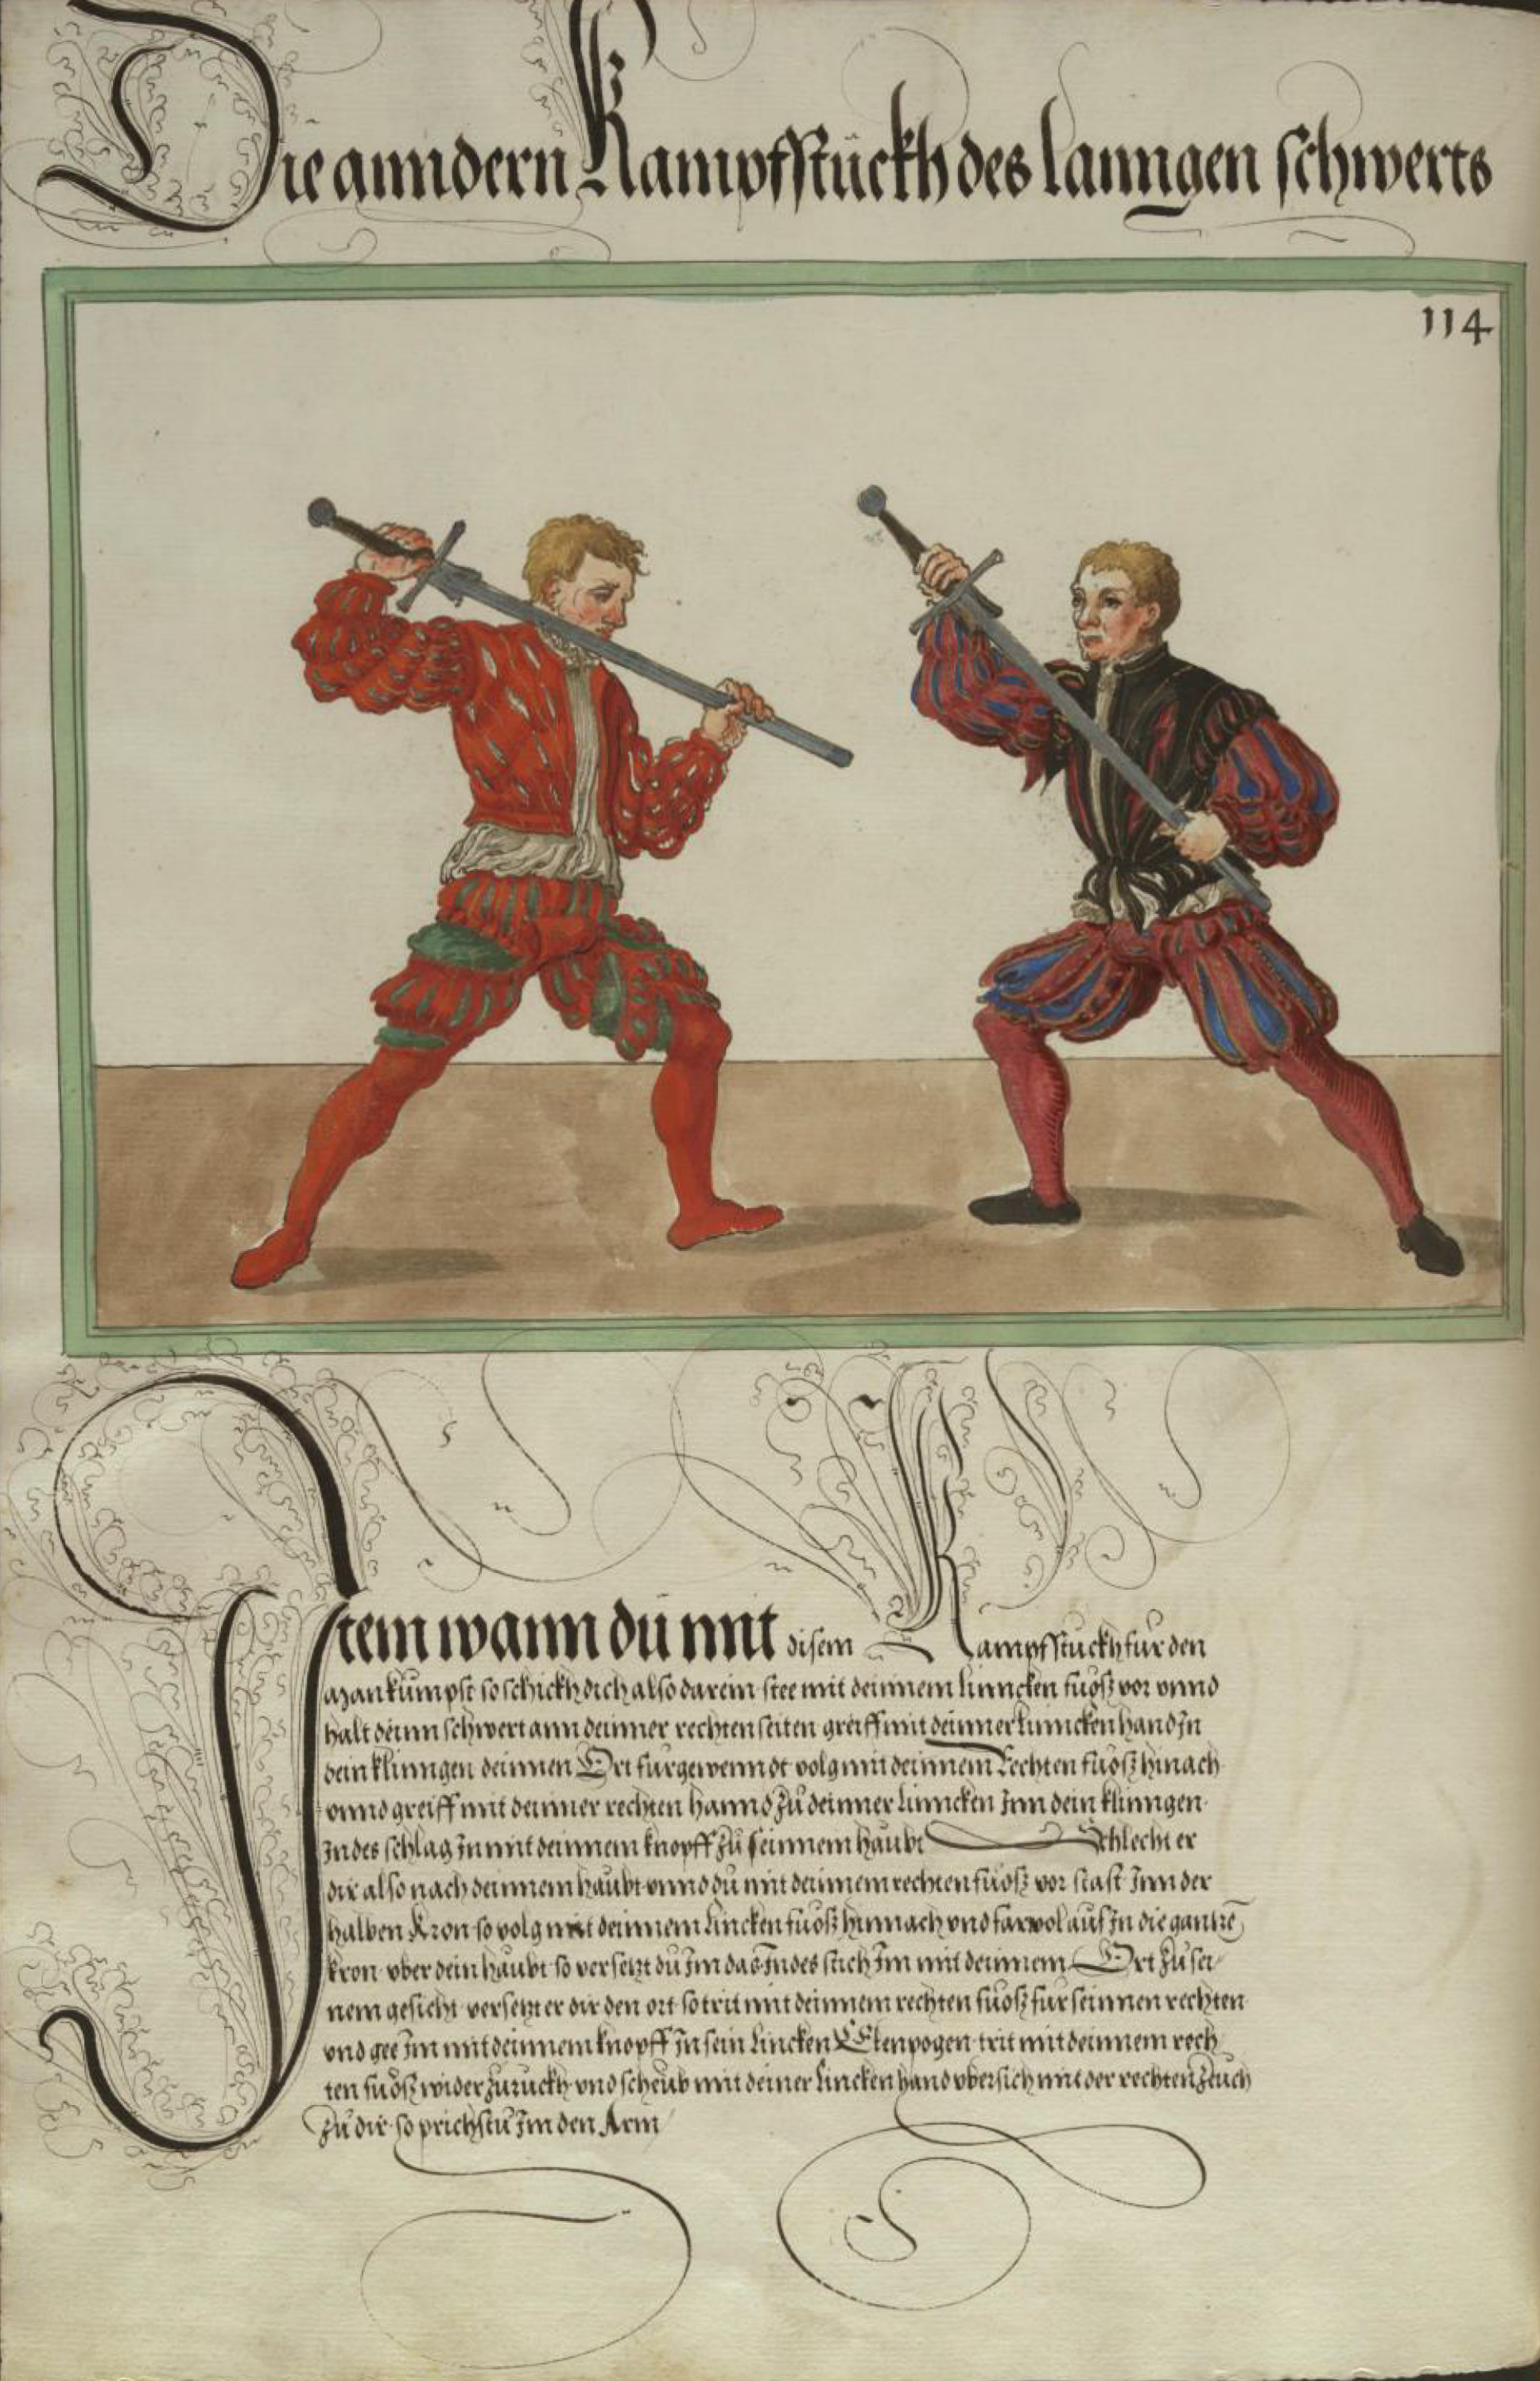 Die anndern Kampfstückh des lanngen schwerts
114
Item wann dü mit disem Kampfstuckh für den
man kumpst so schickh dich also darein stee mit deinnem linncken füosz vor vnnd
halt deinn schwert ann deinner rechten seiten greiff mit deinner linncken hand Jn
dein klinngen deinnen Ort fürgewenndt volg mit deinnem Rechten füosz hinach
vnnd greiff mit deinner rechten hannd zů deinner linncken Jnn dein klinngen
Jndes schlag Jn mit deinnem knopff zů seinnem haübt Schlecht er
dir also nach deinnem haübt vnnd dü mit deinnem rechten füosz vor stast Jnn der
halben Kron so volg mit deinnem lincken füosz hinnach vnd far wol auf Jn die gantzē
kron vber dein haübt so versetzt dü Jm das Jndes stich Jm mit deinnem Ort zů sei
nem gesicht versetzt er dir den ort so trit mit deinnem rechten füosz für seinnen rechten
vnd gee Jm mit deinnem knopff Jn sein lincken Elenpogen trit mit deinnem rech
ten füosz wider zürückh vnd scheüb mit deiner lincken hand vbersich mit der rechten zeuch
zů dir so prichstü Jm den Arm